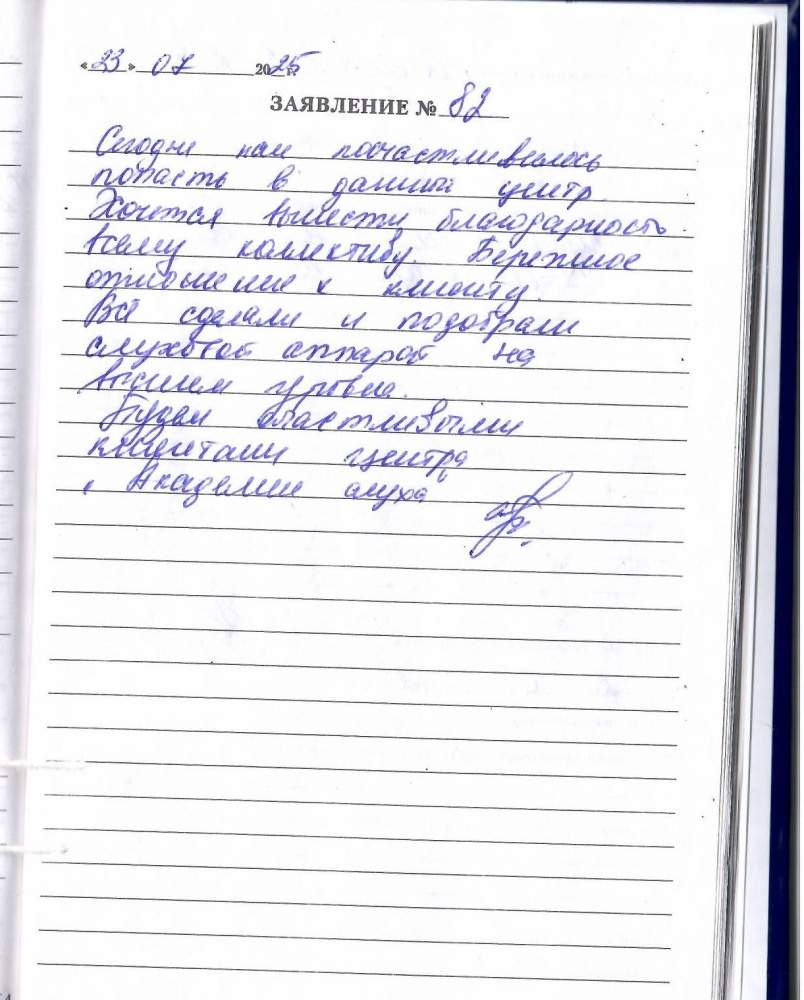 «23» 07 2025 г.
ЗАЯВЛЕНИЕ № 82
Сегодня нам посчастливилось
попасть в данный центр.
Хочется вынести благодарность
всему коллективу. Бережное
отношение к клиенту.
Всё сделали и подобрали
слуховой аппарат на
высшем уровне.
Будем счастливыми
клиентами центра
"Академии слуха"